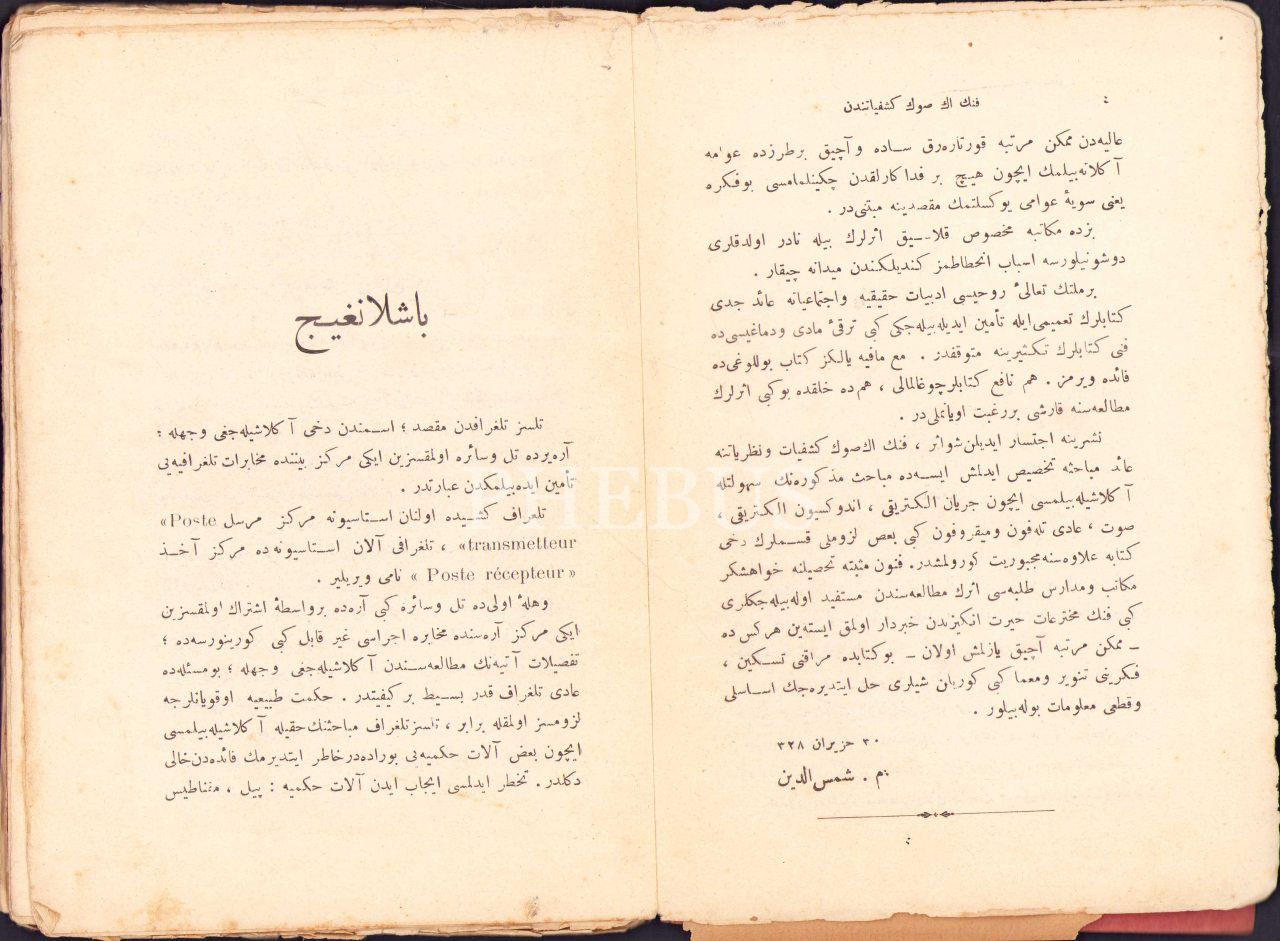 ٤
فنك اك صوك كشفياتندن
عاليه‌دن ممكن مرتبه قورتاره‌رق ساده و آچيق برطرزده عوامه
آكلاته‌بيلمك ايچون هيچ بر فداكارلقدن چكينلمامسى بوفكره
يعنى سويۀ عوامى يوكسلتمك مقصدينه مبتنى‌در .
بزده مكاتبه مخصوص قلاسيق اثرلرك بيله نادر اولدقلرى
دوشونيلورسه اسباب انحطاطمز كنديلكندن ميدانه چيقار .
برملتك تعالئ روحيسى ادبيات حقيقيه واجتماعياته عائد جدى
كتابلرك تعميمى‌ايله تأمين ايديله‌بيله‌جكى كبى ترقئ مادى ودماغيسى‌ده
فنى كتابلرك تكثيرينه متوقفدر . مع مافيه يالكز كتاب بوللوغى‌ده
فائده ويرمز . هم نافع كتابلرچوغالمالى ، هم‌ده خلقده بوكبى اثرلرك
مطالعه‌سنه قارشى بررغبت اويانملى‌در .
نشرينه اجتسار ايديلن‌شواثر ، فنك اك‌صوك كشفيات ونظرياتنه
عائد مباحثه تخصيص ايدلمش ايسه‌ده مباحث مذكوره‌نك سهولتله
آكلاشيله‌بيلمسى ايچون جريان الكتريقى ، اندوكسيون الكتريقى ،
صوت ، عادى تله‌فون وميقروفون كبى بعض لزوملى قسملرك دخى
كتابه علاوه‌سنه‌مجبوريت كورولمشدر. فنون مثبته تحصيلنه خواهشكر
مكاتب ومدارس طلبه‌سى اثرك مطالعه‌سندن مستفيد اوله‌بيله‌جكلرى
كبى فنك مخترعات حيرت انكيزندن خبردار اولمق ايسته‌ين هركس ده
ـ ممكن مرتبه آچيق يازلمش اولان ـ بوكتابده مراقنى تسكين ،
فكرينى تنوير ومعما كبى كورينن شيلرى حل ايتديره‌جك اساسلى
وقطعى معلومات بوله‌بيلور .
٣٠ حزيران ٣٢٨
م . شمس‌الدين
باشلانغيج
تلسز تلغرافدن مقصد ؛ اسمندن دخى آكلاشيله‌جغى وجهله :
آره‌يرده تل وسائره اولمقسزين ايكى مركز بيننده مخابرات تلغرافيه‌يى
تأمين ايده‌بيلمكدن عبارتدر .
تلغراف كشيده اولنان استاسيونه مركز مرسل Poste»
transmetteur» ، تلغرافى آلان استاسيونه ده مركز آخذ
« Poste récepteur » نامى ويريلير .
وهلۀ اولى‌ده تل وسائره كبى آره‌ده برواسطۀ اشتراك اولمقسزين
ايكى مركز آره‌سنده مخابره اجراسى غير قابل كبى كورينورسه‌ده ؛
تفصيلات آتيه‌نك مطالعه‌سندن آكلاشيله‌جغى وجهله ؛ بومسئله‌ده
عادى تلغراف قدر بسيط بر كيفيتدر . حكمت طبيعيه اوقويانلرجه
لزومسز اولمقله برابر ، تلسزتلغراف مباحثنك‌حقيله آكلاشيله‌بيلمسى
ايچون بعض آلات حكميه‌يى بوراده‌درخاطر ايتديرمك فائده‌دن‌خالى
دكلدر . تخطر ايدلمسى ايجاب ايدن آلات حكميه : پيل ، مقناطيس
PHEBUS